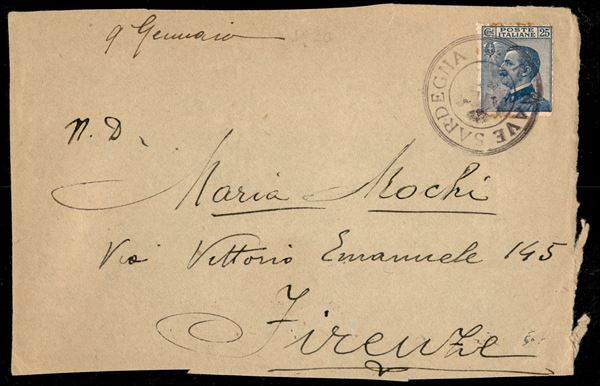 9 Gennaio
POSTE
ITALIANE
Ct. 25
NAVE SARDEGNA
N. D.
Maria Mochi
Via Vittorio Emanuele 145
Firenze